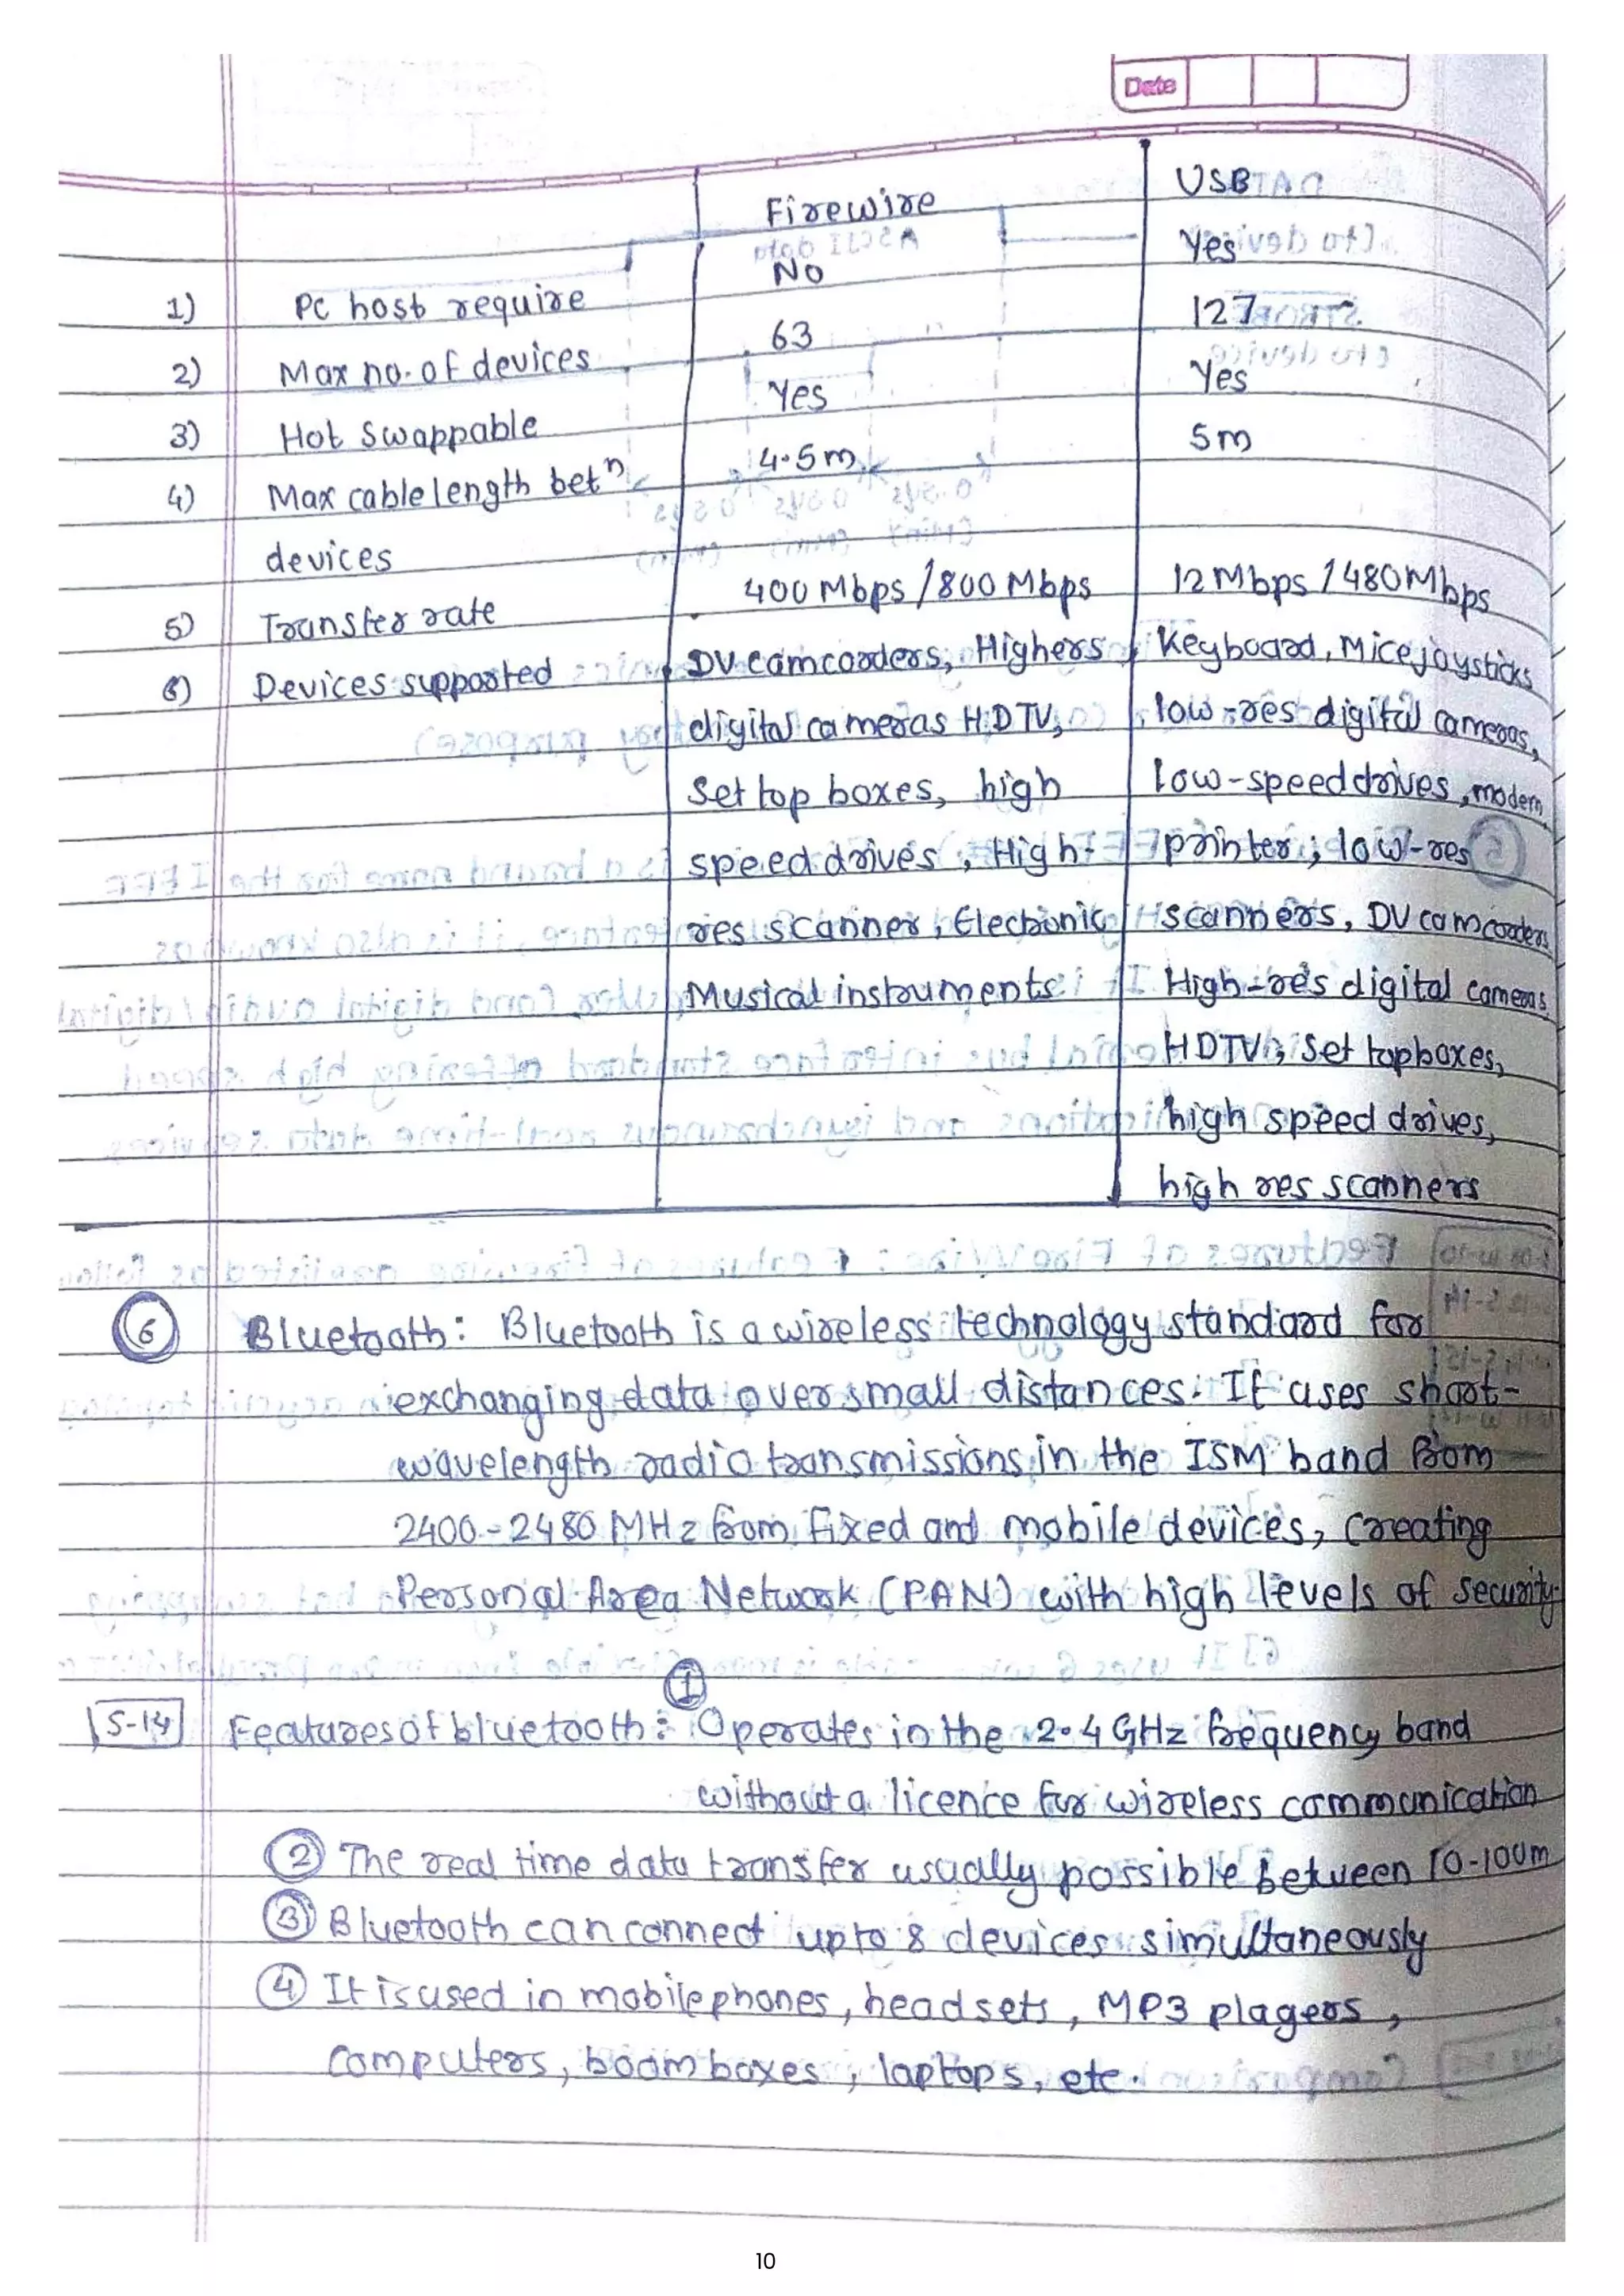 Date
Firewire USB
1) PC host require No Yes
2) Max no. of devices 63 127
3) Hot Swappable Yes Yes
4) Max cable length betn 4.5m 5m
devices
5) Transfer rate 400 Mbps / 800 Mbps 12 Mbps / 480 Mbps
6) Devices supported DV camcorders, Highers Keyboard, Mice joysticks
digital cameras HDTV, low-res digital cameras,
Set top boxes, high low-speed drives, modem
speed drives, High- printer, low-res
res scanner, Electronic scanners, DV camcorders
Musical instruments High-res digital cameras
HDTV, Set topboxes,
high speed drives,
high res scanners
6 Bluetooth: Bluetooth is a wireless technology standard for
exchanging data over small distances. It uses short-
wavelength radio transmissions in the ISM band from
2400-2480 MHz from fixed and mobile devices, creating
Personal Area Network (PAN) with high levels of security.
S-14 Features of bluetooth: 1 Operates in the 2.4 GHz frequency band
without a licence for wireless communication
2 The real time data transfer usually possible between 10-100m
3 Bluetooth can connect upto 8 devices simultaneously
4 It is used in mobilephones, headsets, MP3 players,
computers, boom boxes, laptops, etc.
10